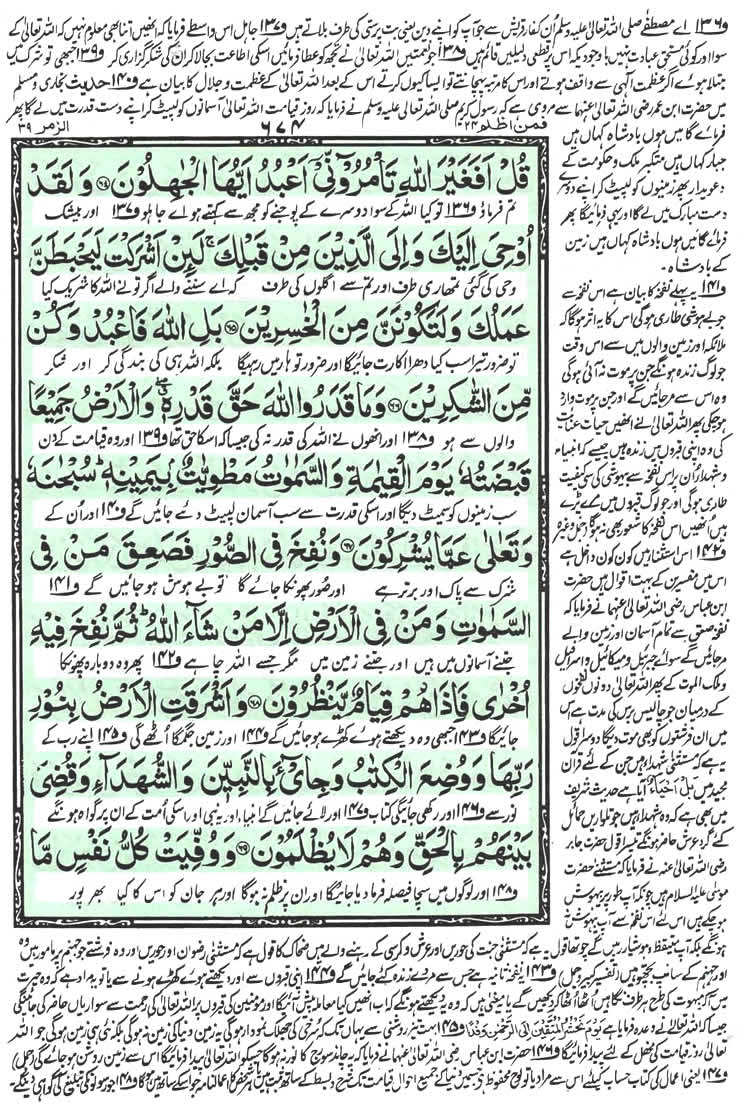 و۱۳۶ اے مصطفےٰ صلی اللہ تعالیٰ علیہ وسلم اُن کفار قریش سے جو آپ کو اپنے دین یعنی بت پرستی کی طرف بلاتے ہیں و۱۳۷ جاہل اس واسطے فرمایا کہ انھیں اتنا بھی معلوم نہیں کہ اللہ تعالیٰ کے
سوا اور کوئی مستحق عبادت نہیں باوجودیکہ اس پر قطعی دلیلیں قائم ہیں و۱۳۸ جو نعمتیں اللہ تعالیٰ نے تجھ کو عطا فرمائیں اسکی اطاعت بجا لا کر ان کی شکرگزاری کر و۱۳۹ جبھی تو شرک میں
مبتلا ہوئے اگر عظمت الٰہی سے واقف ہوتے اور اس کا مرتبہ پہچانتے تو ایسا کیوں کرتے اس کے بعد اللہ تعالیٰ کے عظمت و جلال کا بیان ہے و۱۴۰ حدیث بخاری و مسلم
میں حضرت ابن عمر رضی اللہ تعالیٰ عنہما سے مروی ہے کہ رسول کریم صلی اللہ تعالیٰ علیہ وسلم نے فرمایا کہ روز قیامت اللہ تعالیٰ آسمانوں کو لپیٹ کر اپنے دست قدرت میں لے گا پھر
فمن اظلم ۲۴
۶۷۴
الزمر ۳۹
قُلْ اَفَغَیْرَ اللّٰهِ تَاْمُرُوْٓنِّیْٓ اَعْبُدُ اَیُّهَا الْجٰهِلُوْنَ ۝۶۴ وَ لَقَدْ
تم فرماؤ و۱۳۶ تو کیا اللہ کے سوا دوسرے کے پوجنے کو مجھ سے کہتے ہو اے جاہلو و۱۳۷ اور بیشک
اُوْحِیَ اِلَیْكَ وَ اِلَی الَّذِیْنَ مِنْ قَبْلِكَ ۚ لَىِٕنْ اَشْرَكْتَ لَیَحْبَطَنَّ
وحی کی گئی تمھاری طرف اور تم سے اگلوں کی طرف کہ اے سننے والے اگر تو نے اللہ کا شریک کیا
عَمَلُكَ وَ لَتَكُوْنَنَّ مِنَ الْخٰسِرِیْنَ ۝۶۵ بَلِ اللّٰهَ فَاعْبُدْ وَ كُنْ
تو ضرور تیرا سب کیا دھرا اکارت جائیگا اور ضرور تو ہار میں رہیگا بلکہ اللہ ہی کی بندگی کر اور شکر
مِّنَ الشّٰكِرِیْنَ ۝۶۶ وَ مَا قَدَرُوا اللّٰهَ حَقَّ قَدْرِهٖ ۖ وَ الْاَرْضُ جَمِیْعًا
والوں سے ہو و۱۳۸ اور انھوں نے اللہ کی قدر نہ کی جیسا کہ اسکا حق تھا و۱۳۹ اور وہ قیامت کے دن
قَبْضَتُهٗ یَوْمَ الْقِیٰمَةِ وَ السَّمٰوٰتُ مَطْوِیّٰتٌۢ بِیَمِیْنِهٖ ؕ سُبْحٰنَهٗ
سب زمینوں کو سمیٹ دیگا اور اسکی قدرت سے سب آسمان لپیٹ دئے جائیں گے و۱۴۰ اور اُن کے
وَ تَعٰلٰى عَمَّا یُشْرِكُوْنَ ۝۶۷ وَ نُفِخَ فِی الصُّوْرِ فَصَعِقَ مَنْ فِی
شرک سے پاک اور برتر ہے اور صُور پھونکا جائے گا تو بے ہوش ہو جائیں گے و۱۴۱
السَّمٰوٰتِ وَ مَنْ فِی الْاَرْضِ اِلَّا مَنْ شَآءَ اللّٰهُ ؕ ثُمَّ نُفِخَ فِیْهِ
جتنے آسمانوں میں ہیں اور جتنے زمین میں مگر جسے اللہ چاہے و۱۴۲ پھر وہ دوبارہ پھونکا
اُخْرٰى فَاِذَا هُمْ قِیَامٌ یَّنْظُرُوْنَ ۝۶۸ وَ اَشْرَقَتِ الْاَرْضُ بِنُوْرِ
جائیگا و۱۴۳ جبھی وہ دیکھتے ہوئے کھڑے ہو جائیں گے و۱۴۴ اور زمین جگمگا اُٹھے گی و۱۴۵ اپنے رب کے
رَبِّهَا وَ وُضِعَ الْكِتٰبُ وَ جِایْٓءَ بِالنَّبِیّٖنَ وَ الشُّهَدَآءِ وَ قُضِیَ
نور سے و۱۴۶ اور رکھی جائیگی کتاب و۱۴۷ اور لائے جائیں گے انبیاء اور یہ نبی اور اسکی اُمت کے ان پر گواہ ہونگے
بَیْنَهُمْ بِالْحَقِّ وَ هُمْ لَا یُظْلَمُوْنَ ۝۶۹ وَ وُفِّیَتْ كُلُّ نَفْسٍ مَّا
و۱۴۸ اور لوگوں میں سچا فیصلہ فرما دیا جائیگا اور ان پر ظلم نہ ہوگا اور ہر جان کو اس کا کیا بھر پور
فرمائے گا میں ہوں بادشاہ کہاں ہیں
جبار کہاں ہیں متکبر ملک و حکومت کے
دعویدار پھر زمینوں کو لپیٹ کر اپنے دوسرے
دست مبارک میں لے گا اور یہی فرمائیگا پھر
فرمائے گا میں ہوں بادشاہ کہاں ہیں زمین
کے بادشاہ۔
و۱۴۱ یہ پہلے نفخہ کا بیان ہے اس نفخہ سے
جو بے ہوشی طاری ہوگی اس کا یہ اثر ہوگا کہ
ملائکہ اور زمین والوں میں سے اس وقت
جو لوگ زندہ ہونگے جن پر موت نہ آئی ہوگی
وہ اس سے مر جائیں گے اور جن پر موت وارد
ہو چکی پھر اللہ تعالیٰ نے انھیں حیات عنایت
کی وہ اپنی قبروں میں زندہ ہیں جیسے کہ انبیاء
و شہداء ان پر اس نفخہ سے بیہوشی کی سی کیفیت
طاری ہوگی اور جو لوگ قبروں میں مرے پڑے
ہیں انھیں اس نفخہ کا شعور بھی نہ ہوگا (جمل وغیرہ)
و۱۴۲ اس استثناء میں کون کون داخل ہے
اس میں مفسرین کے بہت اقوال ہیں حضرت
ابن عباس رضی اللہ تعالیٰ عنہما نے فرمایا کہ
نفخہ صعق سے تمام آسمان اور زمین والے
مر جائیں گے سوائے جبریل و میکائیل و اسرافیل
و ملک الموت کے پھر اللہ تعالیٰ دونوں نفخوں
کے درمیان جو چالیس برس کی مدت ہے اس
میں ان فرشتوں کو بھی موت دیگا دوسرا قول
یہ ہے کہ مستثنیٰ شہداء ہیں جن کے لئے قرآن
مجید میں بَلْ اَحْیَآءٌ آیا ہے حدیث شریف
میں بھی ہے کہ وہ شہداء ہیں جو تلواریں حمائل
کئے گرد عرش حاضر ہونگے تیسرا قول حضرت جابر
رضی اللہ تعالیٰ عنہ نے فرمایا کہ مستثنیٰ حضرت
موسیٰ علیہ السلام ہیں چونکہ آپ طور پر بیہوش
ہو چکے ہیں اس لئے اس نفخہ سے آپ بیہوش
ہونگے بلکہ آپ متیقظ و ہوشیار رہیں گے چوتھا قول یہ ہے کہ مستثنیٰ جنت کی حوریں اور عرش و کرسی کے رہنے والے ہیں ضحاک کا قول ہے کہ مستثنیٰ رضوان اور حوریں اور وہ فرشتے جو جہنم پر مامور ہیں وہ
اور جہنم کے سانپ بچھو ہیں (تفسیر کبیر و جمل) و۱۴۳ یہ نفخہ ثانیہ ہے جس سے مردے زندہ کئے جائیں گے و۱۴۴ اپنی قبروں سے اور دیکھتے ہوئے کھڑے ہونے سے یا تو یہ مراد ہے کہ وہ حیرت
میں آ کر مبہوت کی طرح ہر طرف نگاہیں اُٹھا اُٹھا کر دیکھیں گے یا یہ معنی ہیں کہ وہ یہ دیکھتے ہونگے کہ اب انھیں کیا معاملہ پیش آئیگا اور مومنین کی قبروں پر اللہ تعالیٰ کی رحمت سے سواریاں حاضر کی جائیں گی
جیسا کہ اللہ تعالیٰ نے وعدہ فرمایا ہے یَوْمَ نَحْشُرُ الْمُتَّقِیْنَ اِلَى الرَّحْمٰنِ وَفْدًا و۱۴۵ بہت تیز روشنی سے یہاں تک کہ سُرخی کی جھلک نمودار ہوگی یہ زمین دنیا کی زمین نہ ہوگی بلکہ نئی ہی زمین ہوگی جو اللہ
تعالیٰ روز قیامت کی محفل کے لئے پیدا فرمائیگا و۱۴۶ حضرت ابن عباس رضی اللہ تعالیٰ عنہما نے فرمایا کہ یہ چاند سورج کا نور نہ ہوگا بلکہ یہ اور ہی نور ہوگا جسکو اللہ تعالیٰ پیدا فرمائیگا اس سے زمین روشن ہو جائے گی (جمل)
و۱۴۷ یعنی اعمال کی کتاب حساب کیلئے اس سے مراد یا تو لوح محفوظ ہے جسمیں دنیا کے جمیع احوال قیامت تک شرح و بسط کے ساتھ ثبت ہیں یا ہر شخص کا اعمالنامہ جو اسکے ہاتھ میں ہوگا و۱۴۸ جو رسولوں کی تبلیغ کی گواہی دینگے۔